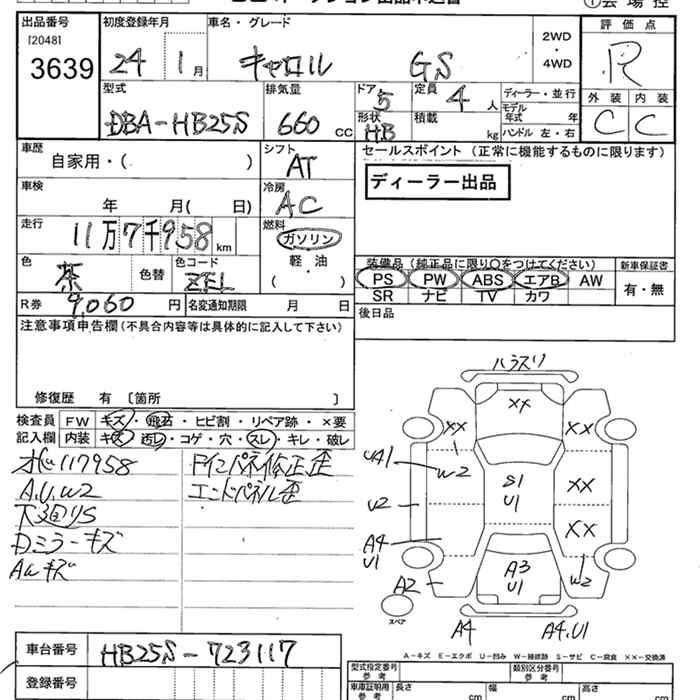 出品番号 初度登録年月 車名・グレード 2WD・4WD 評価点
[2048]
3639 24 1月 キャロル GS R
型式 排気量 ドア 5 定員 4人 ディーラー・並行 外装 内装
DBA-HB25S 660 CC 形状 HB 積載 kg モデル年式 年 ハンドル 左・右 C C
車歴 シフト セールスポイント (正常に機能するものに限ります)
自家用・( ) AT ディーラー出品
車検 冷房
年 月( 日) AC
走行 燃料
11万7千958 km ガソリン
色 色替 色コード 軽・油 装備品 (純正品に限り〇をつけてください) 新車保証書
茶 ZFL ( ) PS PW ABS エアB AW 有・無
SR ナビ TV カワ
R券 9,060 円 名変通知期限 月 日 後日品
注意事項申告欄(不具合内容等は具体的に記入して下さい)
修復歴 有 〔箇所 〕
検査員 FW キズ・飛石・ヒビ割・リペア跡・×要
記入欄 内装 キズ・汚レ・コゲ・穴・スレ・キレ・破レ
117958
A.U.W2 エンドパネル歪
下廻りS
Dミラーキズ
AWキズ
ハラスリ
××
×× ××
UA1 W2 S1 U1 ××
U2 ××
A4 U1 A3 U1 W2
A2
スペア
A4 A4.U1
A-キズ E-エクボ U-凹み W-補修跡 S-サビ C-腐食 ××-交換済
車台番号 HB25S-723117
型式指定番号 類別区分番号
登録番号 車庫証明用参考 長さ cm 幅 cm 高さ cm